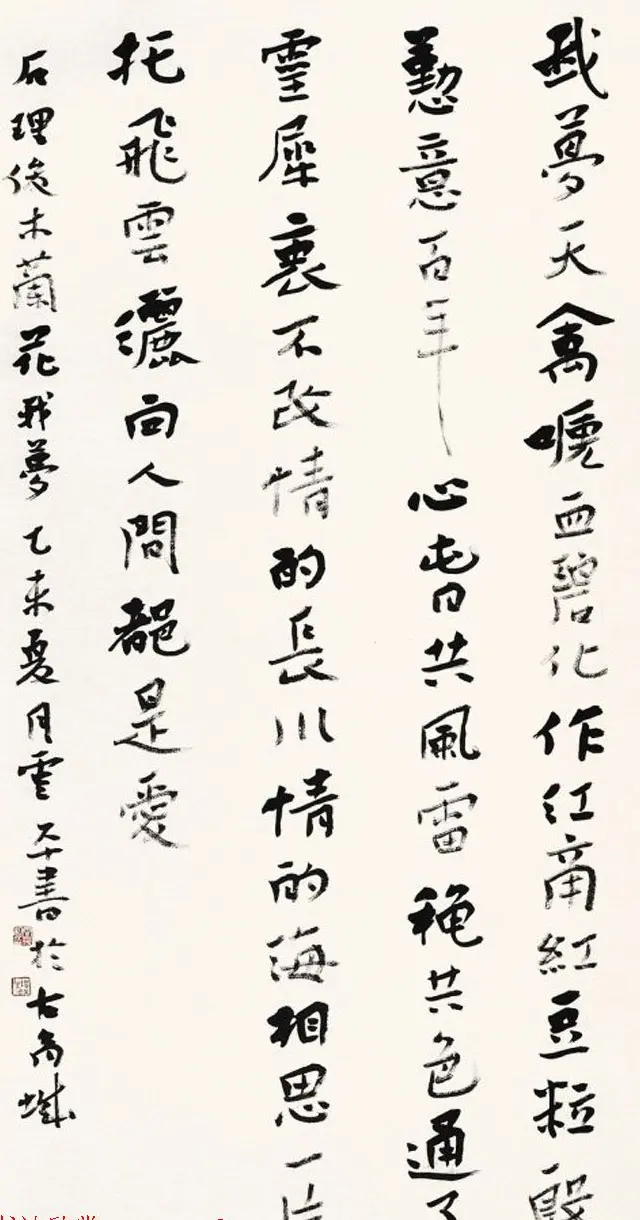 我夢天禽血碧化作江南紅豆粒殷
懃意百年心旾共風雷穐共色通了
靈犀裏不改情的長川情的海相思一片
托飛雲灑向人間都是愛
石理俊木蘭花我夢乙未夏月雲平書於古禹城